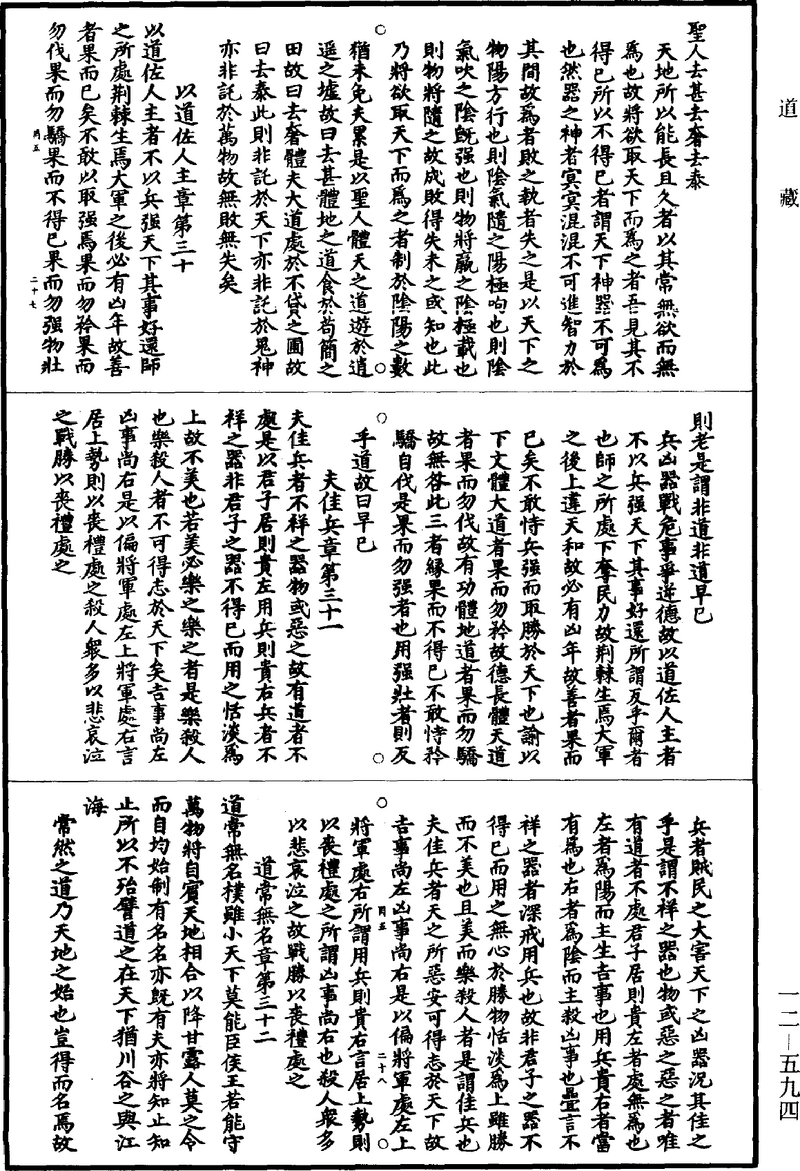 道藏
聖人去甚去奢去泰
天地所以能長且久者以其常無欲而無
為也故將欲取天下而為之者吾見其不
得已所以不得已者謂天下神器不可為
也然器之神者冥冥混混不可進智力於
其間故為者敗之執者失之是以天下之
物陽方行也則陰氣隨之陽極呴也則陰
氣吹之陰既強也則物將羸之陰極載也
則物將隳之故成敗得失未之或知也此
乃將欲取天下而為之者制於陰陽之數
猶未免夫累是以聖人體天之道遊於逍
遥之墟故曰去甚體地之道食於苟簡之
田故曰去奢體夫大道處於不貸之圃故
曰去泰此則非託於天下亦非託於鬼神
亦非託於萬物故無敗無失矣
以道佐人主章第三十
以道佐人主者不以兵強天下其事好還師
之所處荆棘生焉大軍之後必有凶年故善
者果而已矣不敢以取強焉果而勿矜果而
勿伐果而勿驕果而不得已果而勿強物壯
罔五
二十七
則老是謂非道非道早已
兵凶器戰危事爭逆德故以道佐人主者
不以兵強天下其事好還所謂反乎爾者
也師之所處下奪民力故荆棘生焉大軍
之後上違天和故必有凶年故善者果而
已矣不敢恃兵強而取勝於天下也諭以
下文體大道者果而勿矜故德長體天道
者果而勿伐故有功體地道者果而勿驕
故無咎此三者緣果而不得已不敢恃矜
驕自伐是果而勿強者也用強壯者則反
乎道故曰早已
夫佳兵章第三十一
夫佳兵者不祥之器物或惡之故有道者不
處是以君子居則貴左用兵則貴右兵者不
祥之器非君子之器不得已而用之恬淡為
上故不美也若美必樂之樂之者是樂殺人
也樂殺人者不可得志於天下矣吉事尚左
凶事尚右是以偏將軍處左上將軍處右言
居上勢則以喪禮處之殺人衆多以悲哀泣
之戰勝以喪禮處之
兵者賊民之大害天下之凶器況其佳之
乎是謂不祥之器也物或惡之惡之者唯
有道者不處君子居則貴左者處無為也
左者為陽而主生吉事也用兵貴右者當
有為也右者為陰而主殺凶事也疊言不
祥之器者深戒用兵也故非君子之器不
得已而用之無心於勝物恬淡為上雖勝
而不美也且美而樂殺人者是謂佳兵也
夫佳兵者天之所惡安可得志於天下故
吉事尚左凶事尚右是以偏將軍處左上
罔五
二十八
將軍處右所謂用兵則貴右言居上勢則
以喪禮處之所謂凶事尚右也殺人衆多
以悲哀泣之故戰勝以喪禮處之
道常無名章第三十二
道常無名樸雖小天下莫能臣侯王若能守
萬物將自賓天地相合以降甘露人莫之令
而自均始制有名名亦既有夫亦將知止知
止所以不殆譬道之在天下猶川谷之與江
海
常然之道乃天地之始也豈得而名焉故
一二—五九四